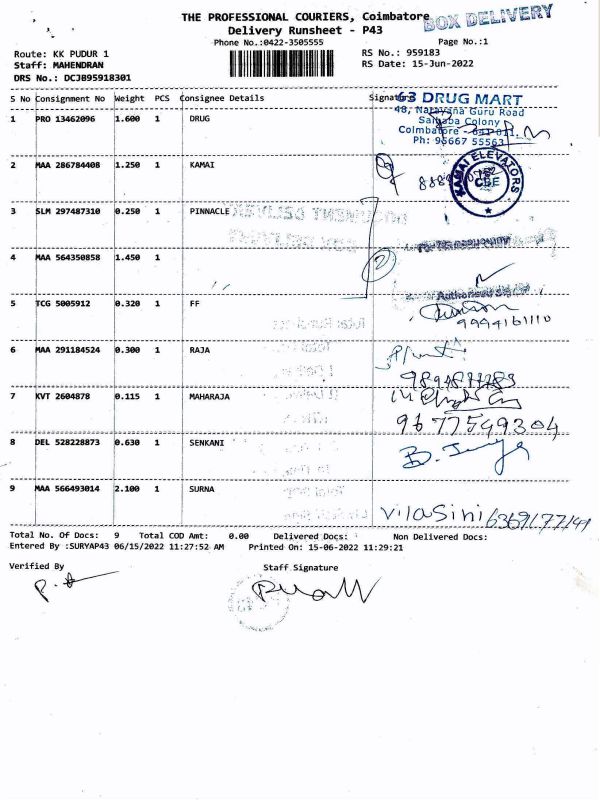 THE PROFESSIONAL COURIERS, Coimbatore
BOX DELIVERY
Delivery Runsheet - P43
Phone No.:0422-3505555
Page No.:1
Route: KK PUDUR 1
RS No.: 959183
Staff: MAHENDRAN
RS Date: 15-Jun-2022
DRS No.: DCJB95918301
S No Consignment No Weight PCS Consignee Details Signature
63 DRUG MART
48, Narayana Guru Road
Saibaba Colony
Coimbatore - 641 011.
Ph: 96667 55563
1 PRO 13462096 1.600 1 DRUG
2 MAA 286784408 1.250 1 KAMAI
KAMAI ELEVATORS
CBE
3 SLM 297487310 0.250 1 PINNACLE
4 MAA 564350858 1.450 1
2
Authorised
5 TCG 5005912 0.320 1 FF
9994161110
6 MAA 291184524 0.300 1 RAJA
7 KVT 2604878 0.115 1 MAHARAJA
9677549304
8 DEL 528228873 0.630 1 SENKANI
9 MAA 566493014 2.100 1 SURNA
Vilasini
Total No. Of Docs: 9 Total COD Amt: 0.00 Delivered Docs: Non Delivered Docs:
Entered By :SURYAP43 06/15/2022 11:27:52 AM Printed On: 15-06-2022 11:29:21
Verified By Staff Signature